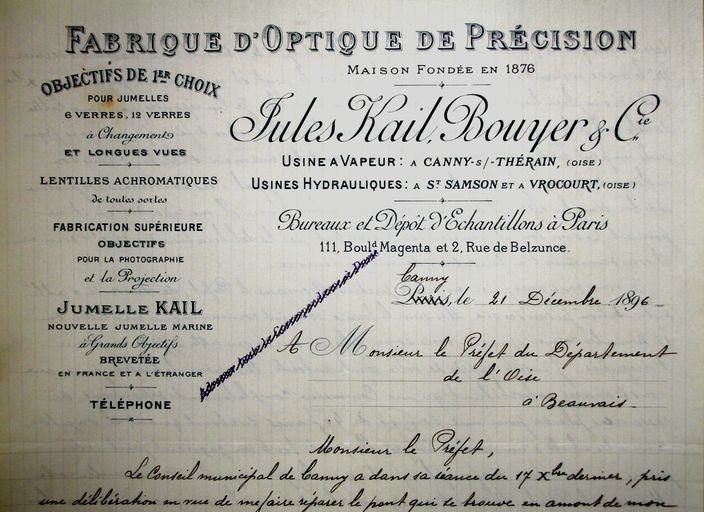 FABRIQUE D'OPTIQUE DE PRÉCISION
MAISON FONDÉE EN 1876
Jules Kail, Bouyer & Cie
USINE A VAPEUR: A CANNY-S/-THÉRAIN, (OISE)
USINES HYDRAULIQUES: A ST SAMSON ET A VROCOURT, (OISE)
Bureaux et Dépôt d'Echantillons à Paris
111, Bould Magenta et 2, Rue de Belzunce.
OBJECTIFS DE 1ER CHOIX
POUR JUMELLES
6 VERRES, 12 VERRES
à Changements
ET LONGUES VUES
LENTILLES ACHROMATIQUES
de toutes sortes
FABRICATION SUPÉRIEURE
OBJECTIFS
POUR LA PHOTOGRAPHIE
et la Projection
JUMELLE KAIL
NOUVELLE JUMELLE MARINE
à Grands Objectifs
BREVETÉE
EN FRANCE ET A L'ÉTRANGER
TÉLÉPHONE
Adresser toute la Correspondance à
Canny
Paris, le 21 Décembre 1896
A Monsieur le Préfet du Département
de l'Oise
à Beauvais
Monsieur le Préfet,
Le Conseil municipal de Canny a dans sa séance du 17 Xbre dernier, pris
une délibération en vue de me faire réparer le pont qui se trouve en amont de mon